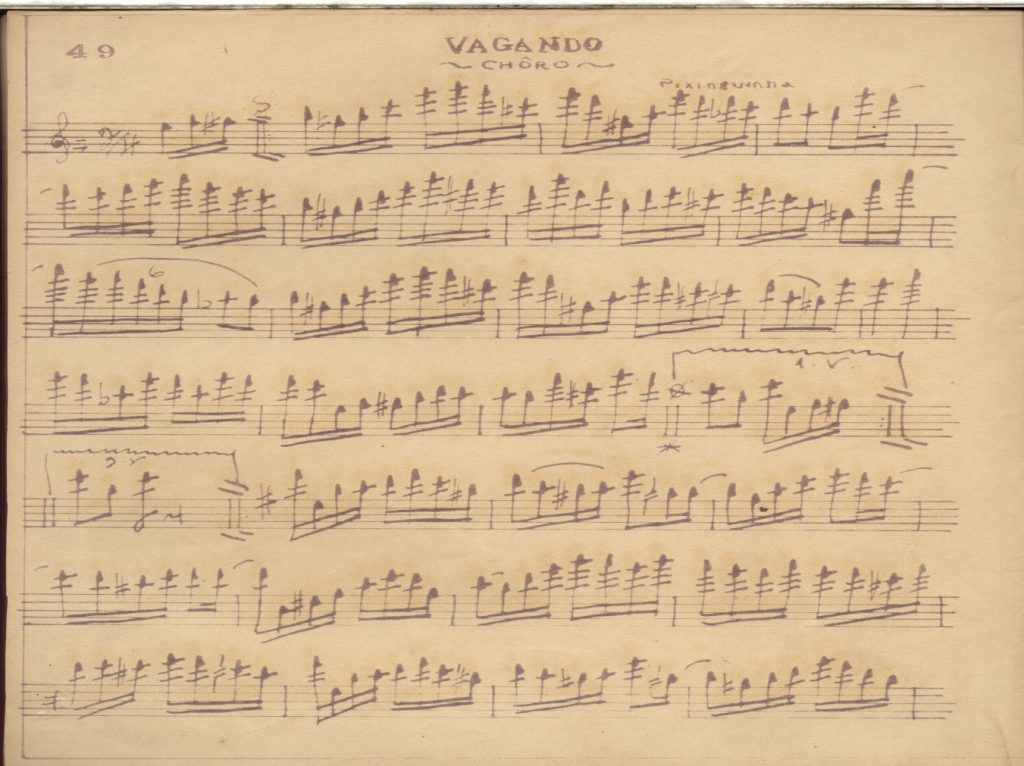 49
VAGANDO
~ CHÔRO ~
Pixinguinha
6
1. v.